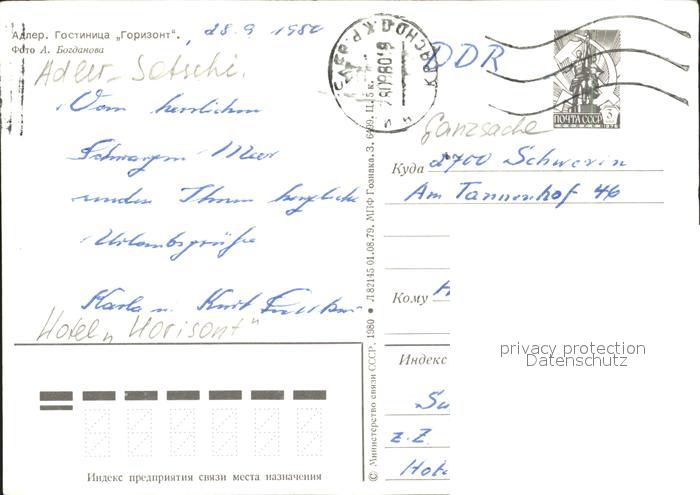 Адлер. Гостиница „Горизонт".
Фото А. Богданова
28.9 1980
Adler-Sotschi.
Vom herrlichen
Schwarzen Meer
senden Ihnen herzliche
Urlaubsgrüße
Karla u. Kurt
Hotel „Horisont"
Индекс предприятия связи места назначения
© Министерство связи СССР. 1980 ● Л 82145 01.08.79. МПФ Гознака. З. 6499. Ц. 5 к.
DDR
ПОЧТА СССР
Ganzsache
Куда 2700 Schwerin
Am Tannenhof 46
Кому
Индекс
z.Z.
privacy protection
Datenschutz